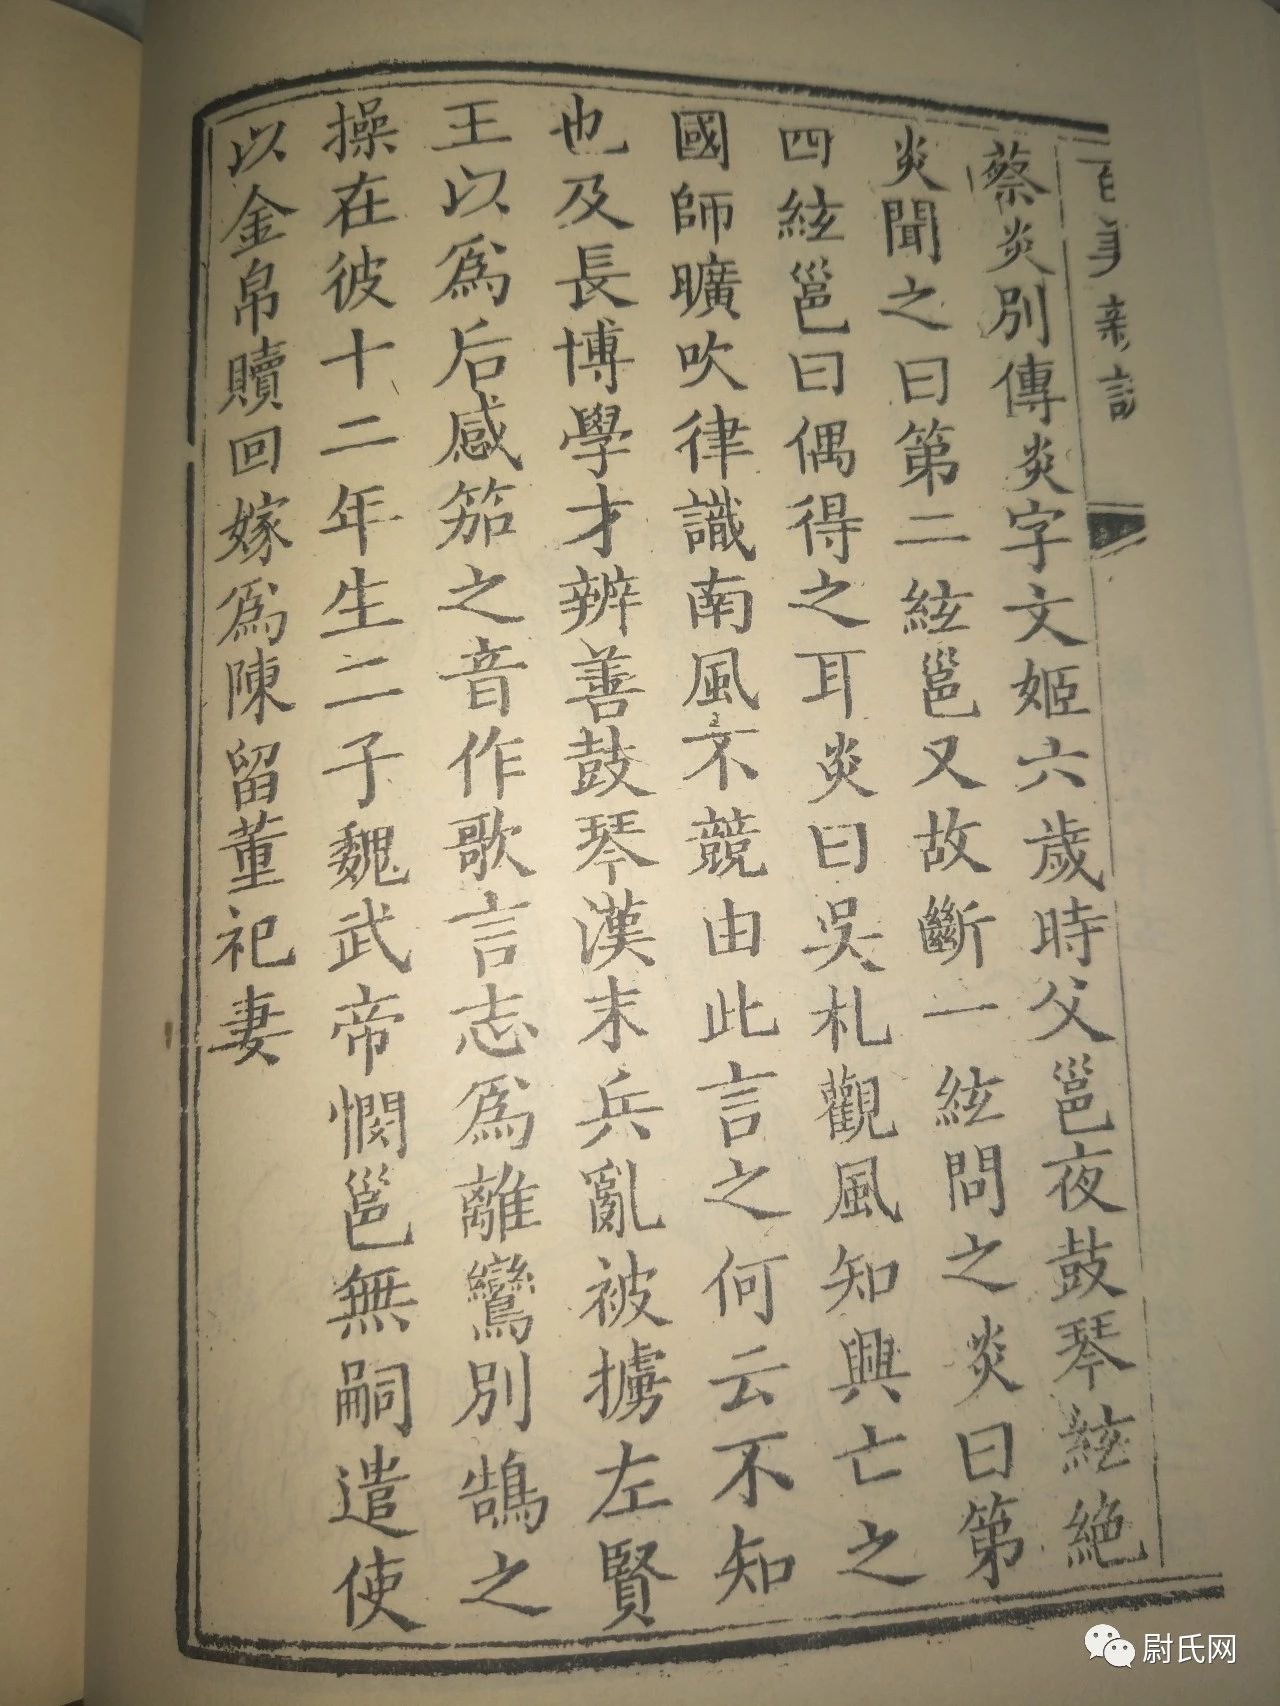 百美新詠
蔡炎別傳炎字文姬六歲時父邕夜鼓琴絃絶
炎聞之曰第二絃邕又故斷一絃問之炎曰第
四絃邕曰偶得之耳炎曰吳札觀風知興亡之
國師曠吹律識南風不競由此言之何云不知
也及長博學才辨善鼓琴漢末兵亂被擄左賢
王以爲后感笳之音作歌言志爲離鸞別鵠之
操在彼十二年生二子魏武帝憫邕無嗣遣使
以金帛贖回嫁爲陳留董祀妻
尉氏网